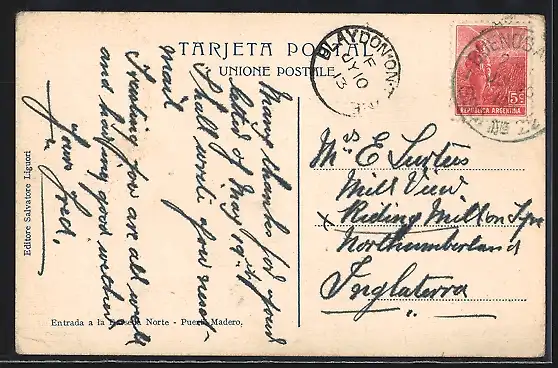 TARJETA POSTAL
UNIONE POSTALE
BLAYDON-ON-
JY 10
13
BUENOS A
5c
REPUBLICA ARGENTINA
Many thanks for your
letter of May 19th,
I shall write you next
mail
Trusting you are all well
and having good wether
Yours
Fred.
Mrs E Surtees
Mill View
Riding Mill on Tyne
Northumberland
Inglaterra
Editore Salvatore Liguori
Entrada a la Darsena Norte - Puerto Madero.